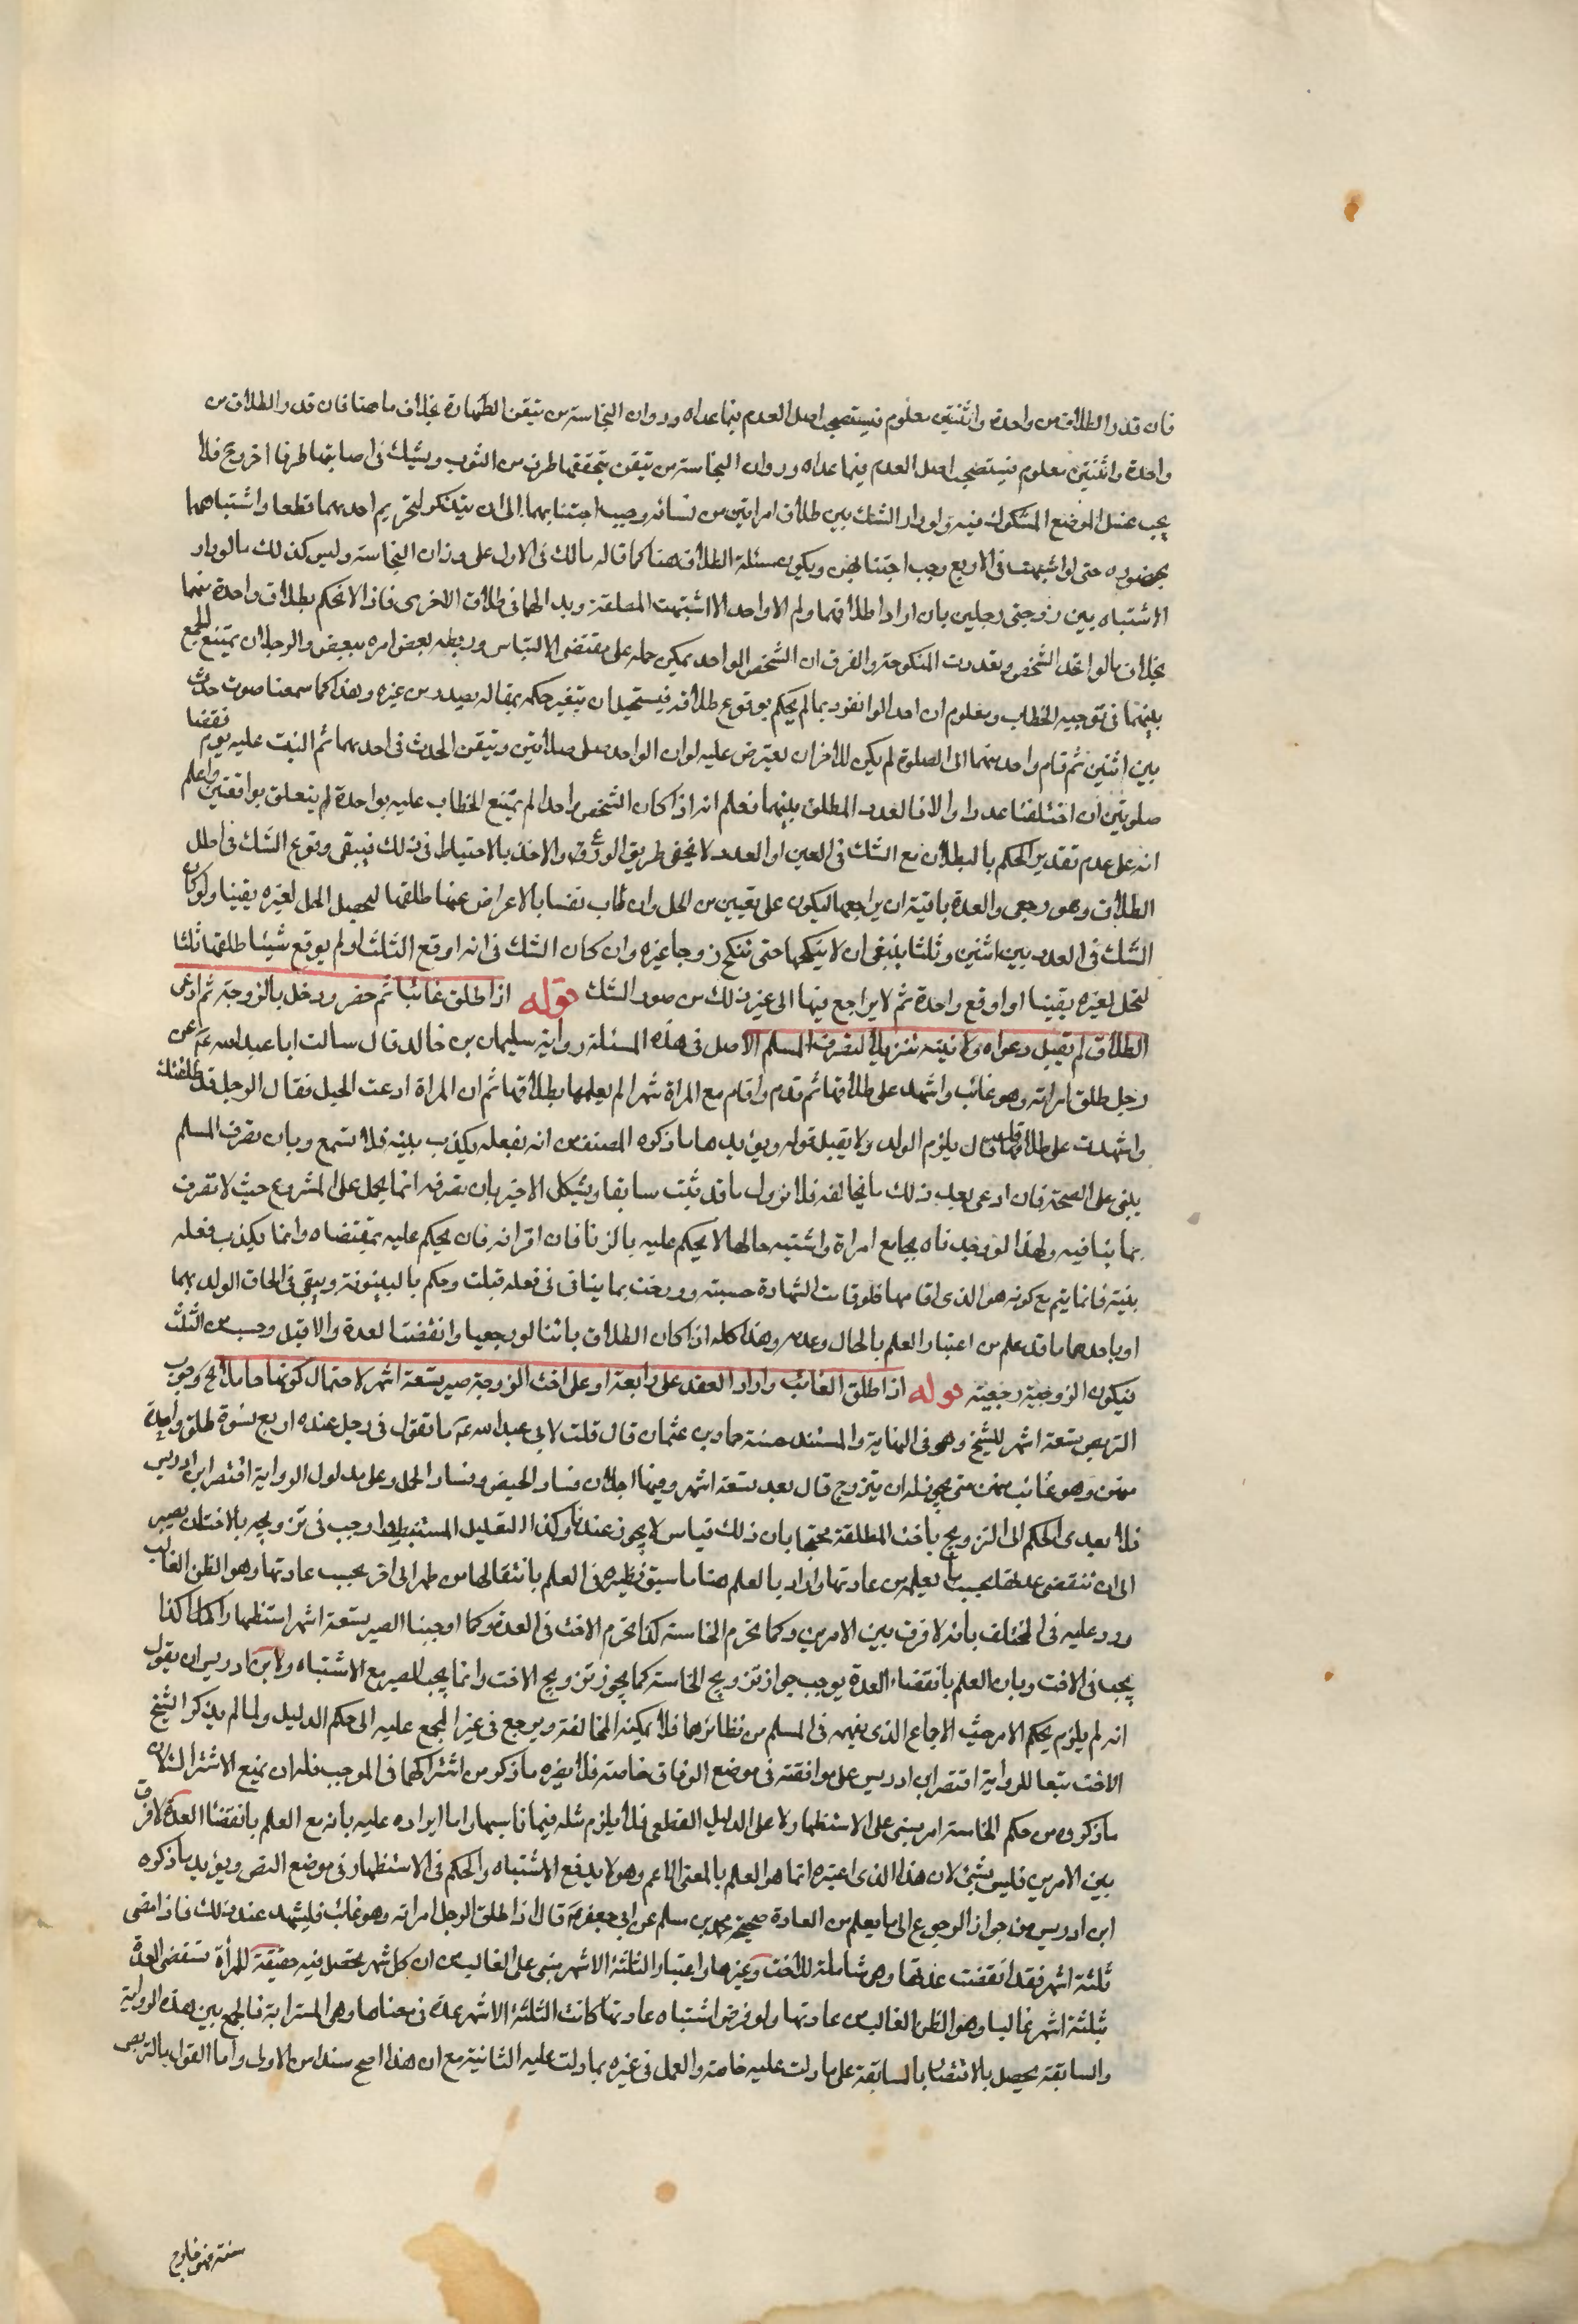 فان قدر الطلاق من واحدة واثنتين معلوم فيستصحب اصل العدم فيما عداه ووزان النجاسة من تيقن الطهارة بخلاف ما هنا فان قدر الطلاق من
واحدة واثنتين معلوم فيستصحب اصل العدم فيما عداه ووزان النجاسة من تيقن تحققها طرف من الثوب ويشك في اصابتها طرفا اخر وح فلا
يجب غسل الموضع المشكوك فيه ولو دار الشك بين طلاق امراتين من نسائه وجب اجتنابهما الى ان يتذكر لتحريم احدهما قطعا واشتباههما
بمحضوره حتى لو اشتبهت في الاربع وجب اجتنابهن ويكون مسئلة الطلاق هنا كما قاله مالك في الاول على وزان النجاسة وليس كذلك ما لو دار
الاشتباه بين زوجتي رجلين بان ارادا طلاقهما ولم الا واحد الا اشتبهت المطلقة وبد الهما في طلاق الاخرى فاذا لا نحكم بطلاق واحدة منهما
بخلاف ما لو اتحد الشخص وتعددت المنكوحة والفرق ان الشخص الواحد يمكن حمله على مقتضى الالتباس وربطه بعض امره ببعض والرجلان يمتنع الجمع
بينهما في توجيه الخطاب ومعلوم ان احدا لو انفرد بما لم يحكم بوقوع طلاقه فيستحيل ان يتغير حكمه بمقاله يصدر من غيره وهذا كما سمعنا صوت حدث
بين اثنين ثم قام واحد منهما الى الصلوة لم يكن للاخر ان يعترض عليه لو ان الواحد صلى صلاتين وتيقن الحدث في احدهما ثم التبت عليه يوم فقضا
صلوتين ان اختلفتا عددا والا فالعدد المطلق بينهما فعلم انه اذا كان الشخص واحدا لم يمتنع الخطاب عليه بواحدة لم يتعلق بوافقتين واعلم
انه على عدم تقدير الحكم بالبطلان مع الشك في العين او العدد لا يخفى طريق الورع والاخذ بالاحتياط في ذلك فيبقى وقوع الشك في اصل
الطلاق وهو رجعي والعدة باقية ان يراجعها ليكون على تعيين من الحل وان طاب نفسا بالاعراض عنها طلقها ليحصل الحل لغيره يقينا ولو كان
الشك في العدد بين اثنين وثلثا ينبغي ان لا ينكحها حتى تنكح زوجا غيره وان كان الشك في انه اوقع الثلث او لم يوقع شيئا طلقها ثلثا
لتحل لغيره يقينا او اوقع واحدة ثم لا يراجع فيها الى غير ذلك من صور الشك قوله اذا طلق غائبا ثم حضر ودخل بالزوجة ثم ادعى
الطلاق لم تقبل دعواه ولا بينته تنزيلا لتصرف المسلم الاصل في هذه المسئلة رواية سليمان بن خالد قال سالت ابا عبد الله ع عن
رجل طلق امراته وهو غائب واشهد على طلاقها ثم قدم واقام مع المراة شهرا لم يعلمها بطلاقها ثم ان المراة ادعت الحبل فقال الرجل قد طلقتك
واشهدت على طلاقك قال يلزم الولد ولا يقبل قوله ويؤيدها ما ذكره المصنف من انه بفعله يكذب بينته فلا تسمع وبان تصرف المسلم
يبنى على الصحة فان ادعى بعد ذلك ما يخالفه فلا نزول ما قد ثبت سابقا ويشكل الاخير بان تصرفه انما يحمل على المشروع حيث لا تعرف
بما ينافيه ولهذا لو وجدناه يجامع امراة واشتبه حالها لا يحكم عليه بالزنا فان اقر انه فان يحكم عليه بمقتضاه وانما يكذب فعله
بينته فانما يتم مع كونه هو الذي اقامها فلو قامت الشهادة حسبة وورخت بما ينافي في فعله قبلت وحكم بالبينونة ويبقى في الحاق الولد بهما
او باحدهما ما قد علم من اعتبار العلم بالحال وعدمه وهذا كله اذا كان الطلاق بائنا او رجعيا وانقضت العدة والا قبل وحسب من الثلث
فيكون الزوجية رجعية قوله اذا طلق الغائب واراد العقد على رابعة او على اخت الزوجة صبر تسعة اشهر لاحتمال كونها حاملا ح وجوب
التربص تسعة اشهر للشيخ وهو في النهاية والمستند حسنة حماد بن عثمان قال قلت لابي عبد الله ع ما تقول في رجل عنده اربع نسوة طلق واحدة
منهن وهو غائب عنهن متى يجوز له ان يتزوج قال بعد تسعة اشهر وفيها اجلان فساد الحيض وفساد الحمل وعلى مدلول الرواية اقتصر ابن ادريس
فلا يعدى الحكم الى التزويج باخت المطلقة محتجا بان ذلك قياس لا يجوز عندنا وكذا التعليل المستنبط واوجب في تزويجه بالاخت ان يصبر
الى ان تنقضي عدتها بحسب ما يعلمه من عادتها واراد بالعلم هنا ما سبق نظيره في العلم بانتقالها من طهر الى اخر بحسب عادتها وهو الظن الغالب
ورد عليه في المختلف بانه لا فرق بين الامرين وكما تحرم الخامسة كذا تحرم الاخت في العدة وكما اوجبنا الصبر تسعة اشهر استظهارا هناك كذا
يجب في الاخت وبان العلم بانقضاء العدة يوجب جواز تزويج الخامسة كما يجوز تزويج الاخت وانما يجب الصبر مع الاشتباه ولابن ادريس ان يقول
انه لم يلزم بحكم الامر حيث الاجماع الذي يفهمه في المسلم من نظائرها فلا يمكنه المخالفة ويرجع في غير المجمع عليه الى حكم الدليل ولما لم يذكر الشيخ
الاخت تبعا للرواية اقتصر ابن ادريس على موافقته في موضع الوفاق خاصة فلا يضره ما ذكر من اشتراكهما في الموجب فله ان يمنع الاشتراك لان
ما ذكروه من حكم الخامسة امر مبني على الاستظهار لا على الدليل القطعي فلا يلزم مثله فيما ناسبها واما ايراده عليه بانه مع العلم بانقضاء العدة لا فرق
بين الامرين فليس بشيء لان هذا الذي اعتبره انما هو العلم بالمعنى الاعم وهو لا يدفع الاشتباه والحكم في الاستظهار في موضع النص ويؤيد ما ذكره
ابن ادريس من جواز الرجوع الى ما يعلم من العادة صحيحة محمد بن مسلم عن ابي جعفر ع قال اذا طلق الرجل امراته وهو غائب فليشهد عند ذلك فاذا مضى
ثلثة اشهر فقد انقضت عدتها وهي شاملة للاخت وغيرها واعتبار الثلثة الاشهر مبني على الغالب من ان كل شهر يحصل فيه حيضة للمرأة تنقضي العدة
بثلثة اشهر غالبا وهو الظن الغالب من عادتها ولو فرض اشتباه عادتها كانت الثلثة الاشهر عدة في معناها وهي المسترابة فالجمع بين هذه الرواية
والسابقة يحصل بالاقتصار بالسابقة على ما دلت عليه خاصة والعمل في غيره بما دلت عليه الثانية مع ان هذا اصح سندا من الاولى واما القول بالتربص